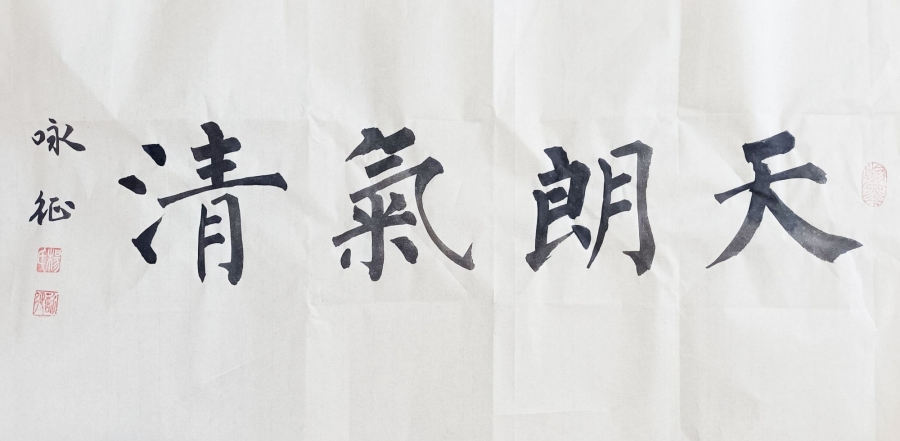 天朗氣清
咏征